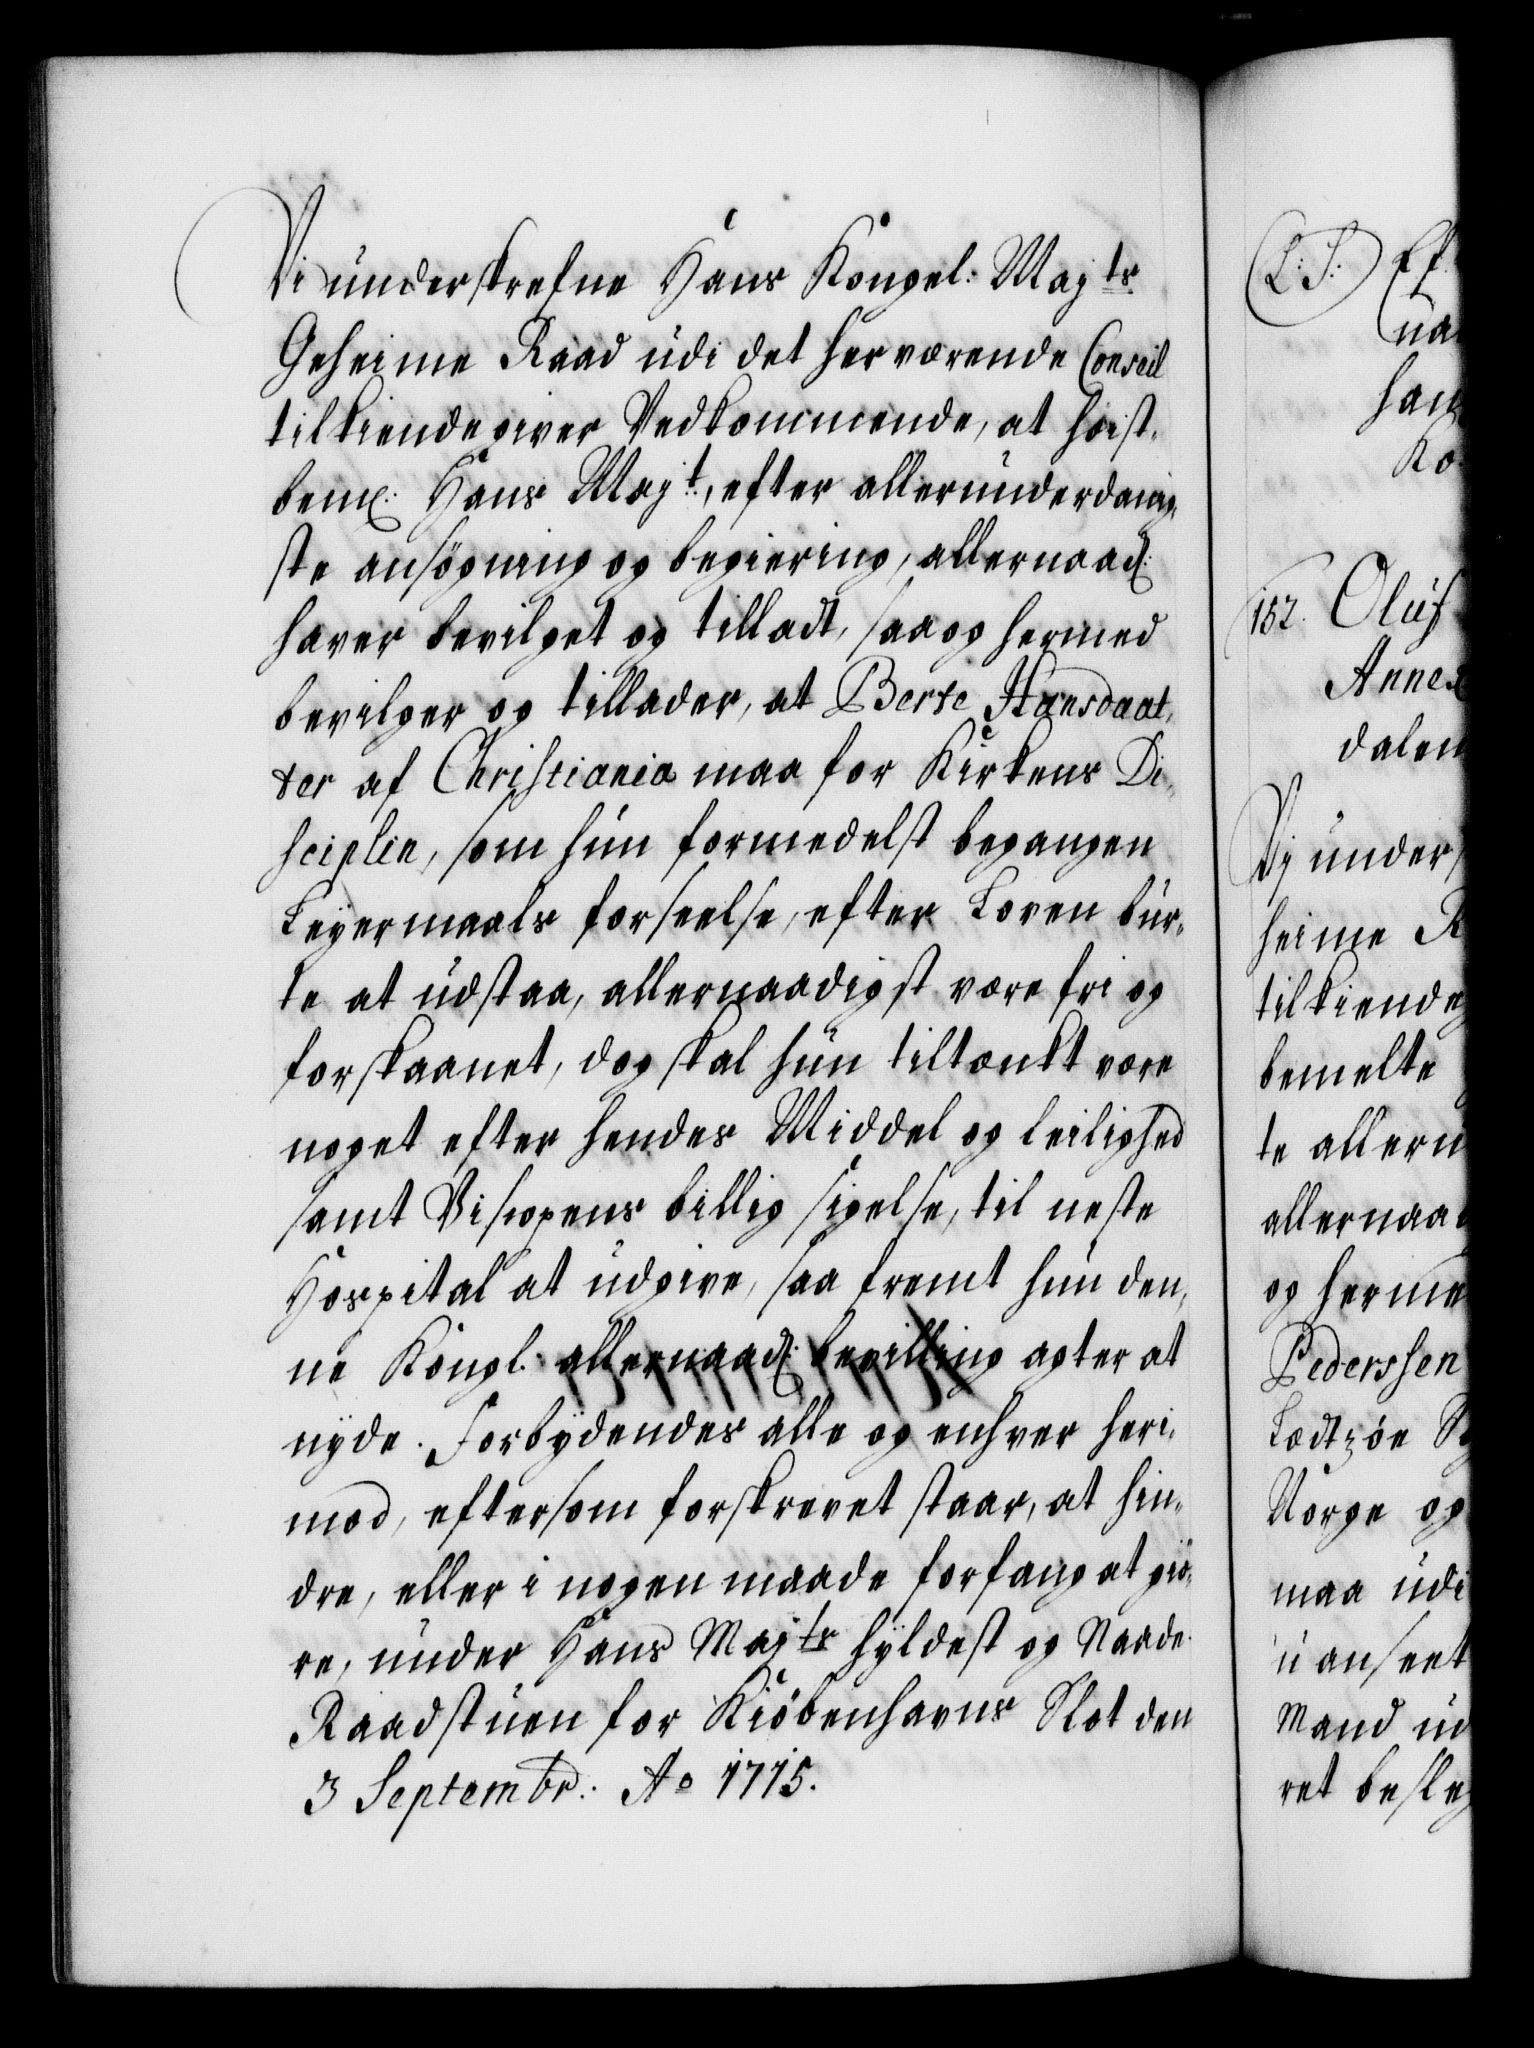 Vi underskrefne Hans Kongel: Majts
Geheime Raad udi det herværende Conseil
tilkiendegiver Vedkommende, at høist-
bem: Hans Majt, efter allerunderdanig-
ste ansøgning og begiering, allernaad:
haver bevilget og tilladt, saa og hermed
bevilger og tillader, at Berte Hansdaat-
ter af Christiania maa for Kirkens Di-
sciplin, som hun formedelst begangen
Leyermaals forseelse, efter Loven bur-
te at udstaa, allernaadigst være fri og
forskaanet, dog skal hun tiltænkt være
noget efter hendes Middel og leilighed
samt Biscopens billig sigelse, til neste
Hospital at udgive, saa fremt hun den-
ne Kongl: allernaad: bevilling agter at
nyde. Forbydendes alle og enhver heri-
mod, eftersom forskrevet staar, at hin-
dre, eller i nogen maade forfang at giø-
re, under Hans Majts hyldest og Naade.
Raadstuen for Kiøbenhavns Slot den
3 Septembr: Ao 1715.
L: S:
na
han
Ko
152. Oluf
Anne
dalen
Vj unders
heime R
tilkiendeg
bemelte
te alleru
allernaa
og herme
Pederssen
Lodtzøe
Norge og
maa udi
uanseet
Mand ud
ret besleg